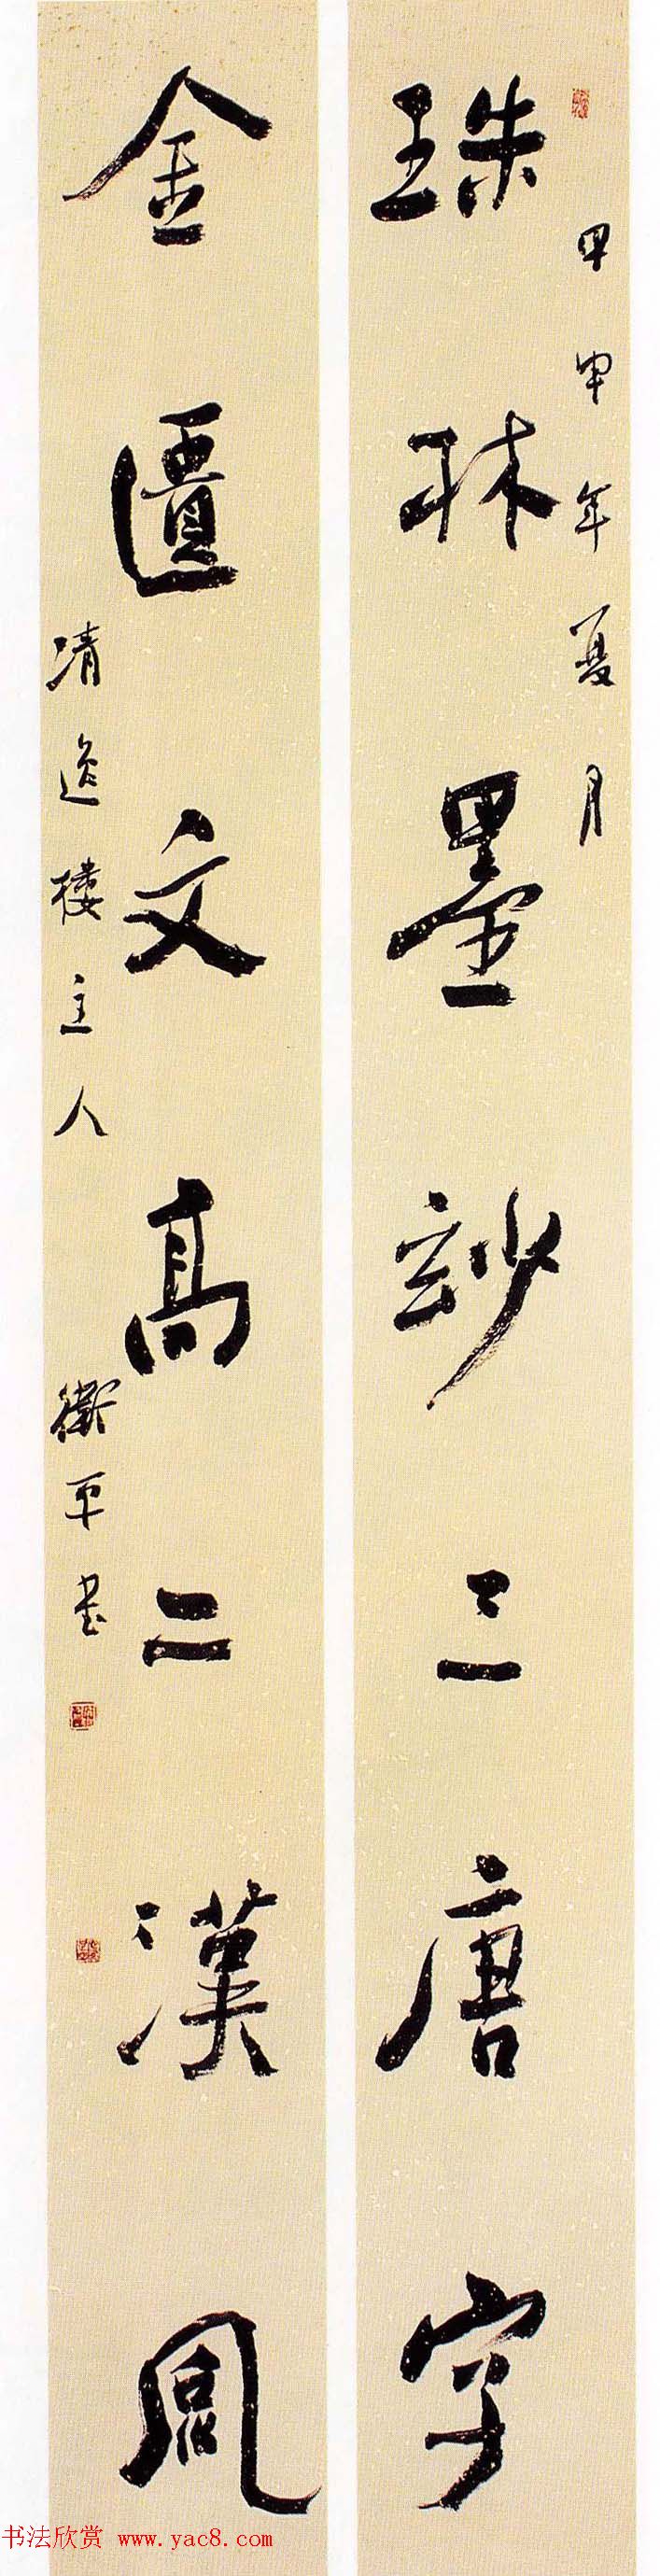 甲申年夏月
珠林墨玅三唐字
金匱文高二漢風
清逸樓主人 衛平書
书法欣赏 www.yac8.com